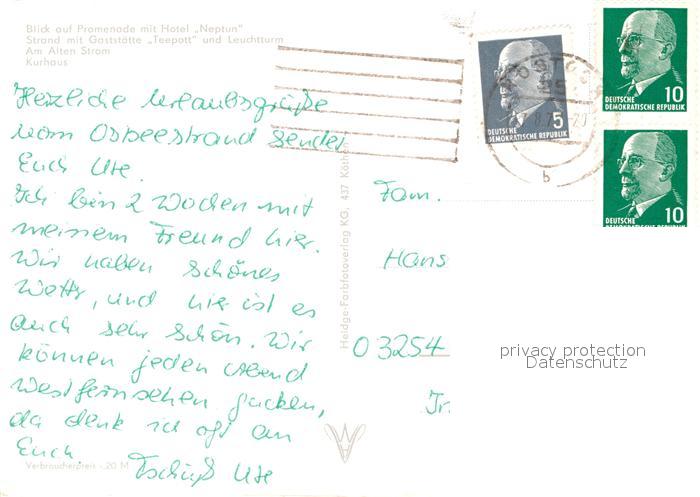 Blick auf Promenade mit Hotel „Neptun"
Strand mit Gaststätte „Teepott" und Leuchtturm
Am Alten Strom
Kurhaus
Herzliche Urlaubsgrüße
vom Ostseestrand sendet
Euch Ute.
Ich bin 2 Wochen mit
meinem Freund hier.
Wir haben schönes
Wetter, und hier ist es
auch sehr schön. Wir
können jeden Abend
Westfernsehen gucken,
da denk ich oft an
Euch. Tschüß Ute
Verbraucherpreis -.20 M
Heldge-Farbfotoverlag KG, 437 Köthen
DEUTSCHE
DEMOKRATISCHE REPUBLIK 5
10
DEUTSCHE
DEMOKRATISCHE REPUBLIK
10
DEUTSCHE
b
Fam.
Hans
03254
privacy protection
Datenschutz